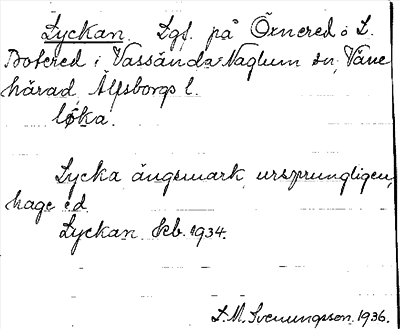 Lyckan. Lgf. på Örnered o L.
Botered i Vassända-Naglum sn, Väne
härad, Älfsborgs l.
løka.
Lycka ängsmark, ursprungligen,
hage ed.
Lyckan. Ekb. 1934.
S. M. Svenungsson 1936.